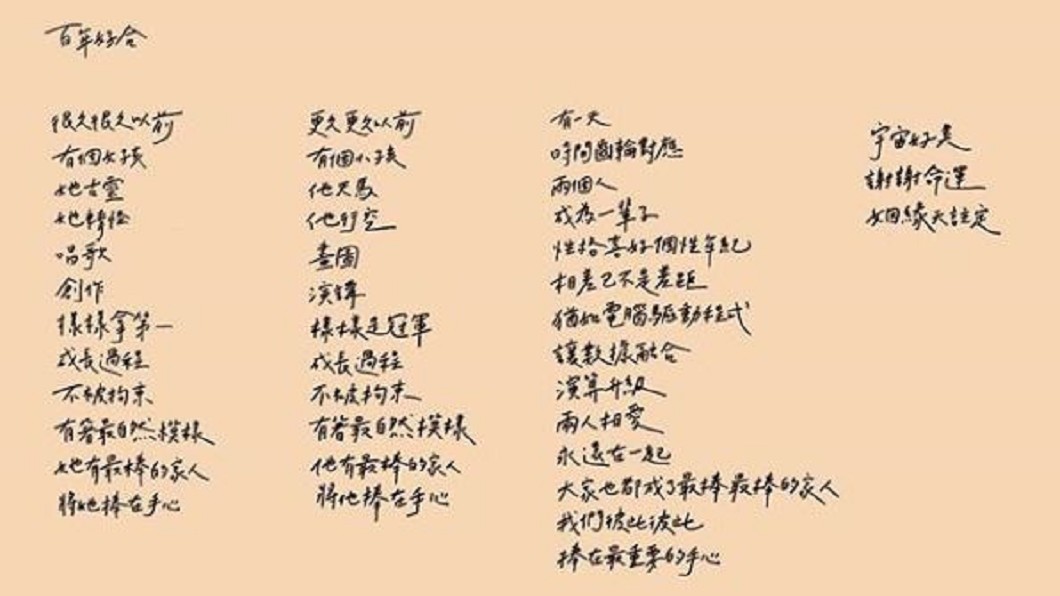 百年好合
很久很久以前
有個女孩
她古靈
她精怪
唱歌
創作
樣樣拿第一
成長過程
不被拘束
有著最自然模樣
她有最棒的家人
將她捧在手心
更久更久以前
有個小孩
他天馬
他行空
畫圖
演講
樣樣是冠軍
成長過程
不被拘束
有著最自然模樣
他有最棒的家人
將他捧在手心
有一天
時間齒輪對應
兩個人
成為一輩子
性格喜好個性年紀
相差已不是差距
猶如電腦驅動程式
讓數據融合
演算升級
兩人相愛
永遠在一起
大家也都成了最棒最棒的家人
我們彼此彼此
捧在最重要的手心
宇宙好美
謝謝命運
姻緣天註定